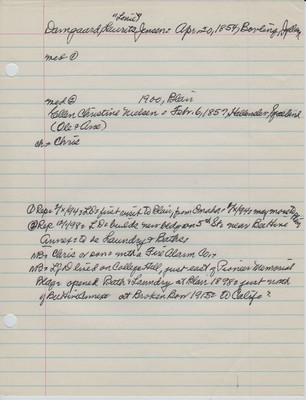 "Louie"
Damgaard, Lauritz Jensen = Apr. 20, 1854, Borling, Jylland
md ①
md ② 1900, Blair
Ellen Christine Nielsen = Febr. 6, 1857, Hallender, Sjaelland
(Ole & Ane)
ch = Chris
① Rep = 7/4/94 = LD's first visit to Blair, from Omaha = 7/19/94 = may move to Blair
② Rep = 4/98 = LD = builds new bldg on 5th St. near Bee Hive
Annex = to be Laundry & Baths
NB = Chris or son = with a Fire Alarm Co.,
NB = LJD lived on College Hill, just east of Pioneer Memorial
Bldg = opened Bath & Laundry at Blair 1898 = just north
of Bee Hive Annex at Broken Bow 1915 = to Calif = ?